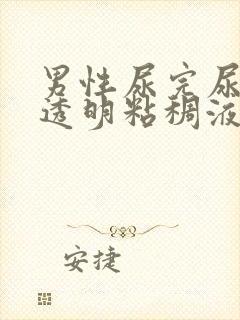 男性尿完尿
透明粘稠液
安捷